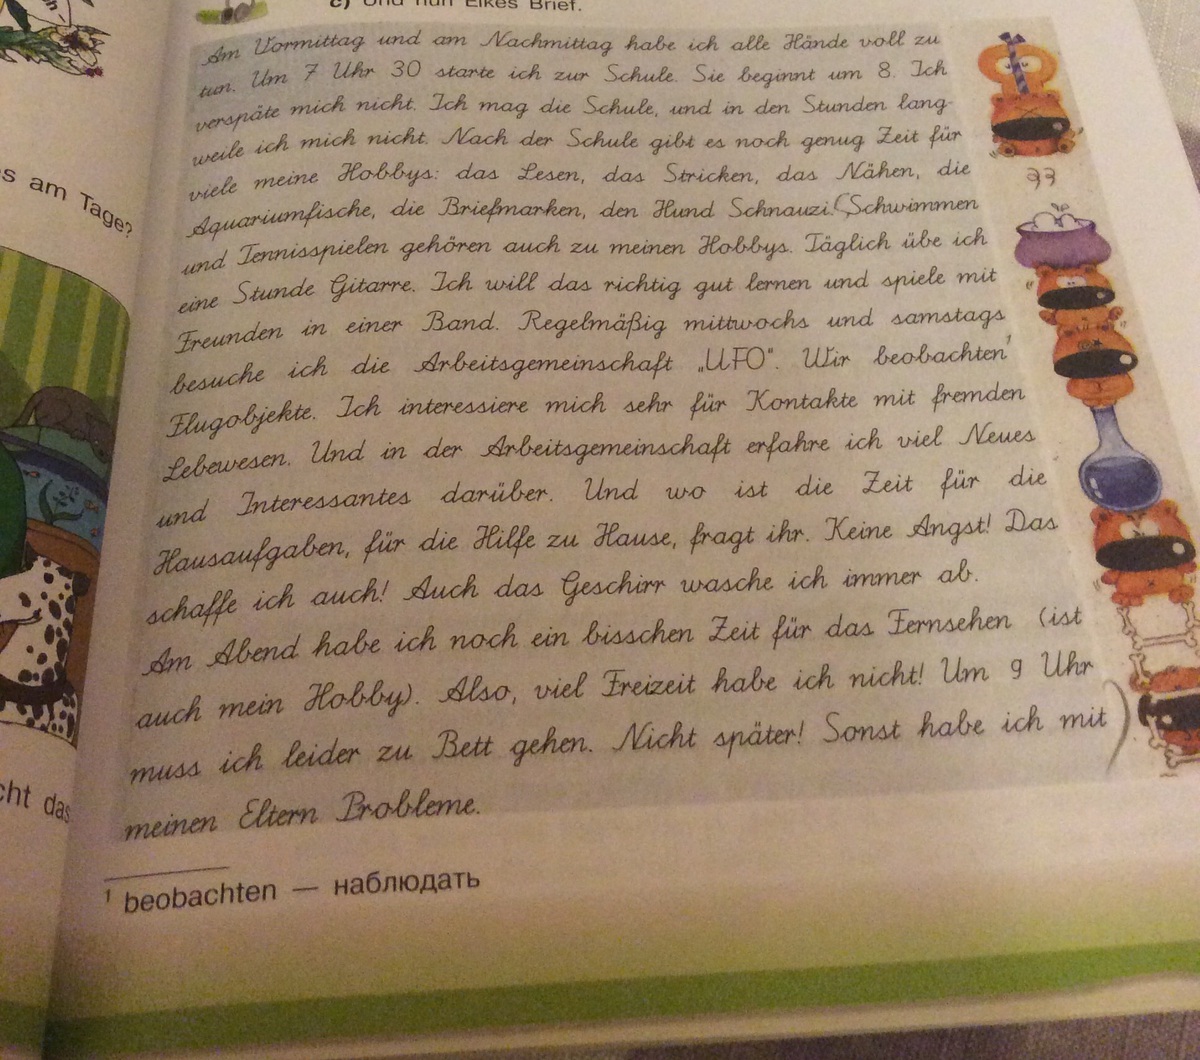 c) Und nun Elkes Brief.
Am Vormittag und am Nachmittag habe ich alle Hände voll zu
tun. Um 7 Uhr 30 starte ich zur Schule. Sie beginnt um 8. Ich
verspäte mich nicht. Ich mag die Schule, und in den Stunden lang-
weile ich mich nicht. Nach der Schule gibt es noch genug Zeit für
viele meine Hobbys: das Lesen, das Stricken, das Nähen, die
Aquariumfische, die Briefmarken, den Hund Schnauzi. Schwimmen
und Tennisspielen gehören auch zu meinen Hobbys. Täglich übe ich
eine Stunde Gitarre. Ich will das richtig gut lernen und spiele mit
Freunden in einer Band. Regelmäßig mittwochs und samstags
besuche ich die Arbeitsgemeinschaft „UFO“. Wir beobachten¹
Flugobjekte. Ich interessiere mich sehr für Kontakte mit fremden
Lebewesen. Und in der Arbeitsgemeinschaft erfahre ich viel Neues
und Interessantes darüber. Und wo ist die Zeit für die
Hausaufgaben, für die Hilfe zu Hause, fragt ihr. Keine Angst! Das
schaffe ich auch! Auch das Geschirr wasche ich immer ab.
Am Abend habe ich noch ein bisschen Zeit für das Fernsehen (ist
auch mein Hobby). Also, viel Freizeit habe ich nicht! Um 9 Uhr
muss ich leider zu Bett gehen. Nicht später! Sonst habe ich mit
meinen Eltern Probleme.
¹ beobachten — наблюдать
es am Tage?
cht das